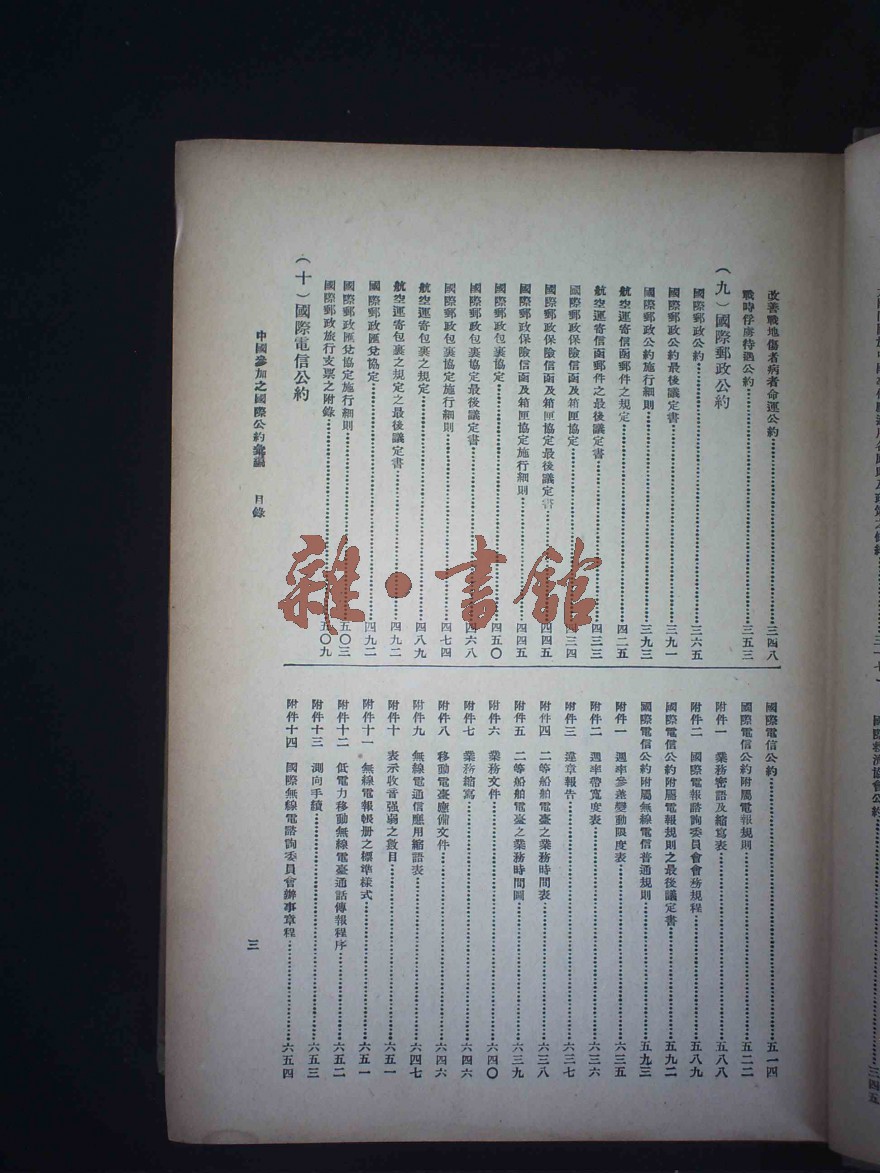 改善戰地傷者病者命運公約……三四八
戰時俘虜待遇公約……三五三
(九)國際郵政公約
國際郵政公約……三六五
國際郵政公約最後議定書……三九一
國際郵政公約施行細則……三九三
航空運寄信函郵件之規定……四二五
航空運寄信函郵件之最後議定書……四三三
國際郵政保險信函及箱匣協定……四三四
國際郵政保險信函及箱匣協定最後議定書……四四五
國際郵政保險信函及箱匣協定施行細則……四四五
國際郵政包裹協定……四五〇
國際郵政包裹協定最後議定書……四六八
國際郵政包裹協定施行細則……四七四
航空運寄包裹之規定……四八九
航空運寄包裹之規定之最後議定書……四九二
國際郵政匯兌協定……四九二
國際郵政匯兌協定施行細則……五〇三
國際郵政旅行支票之附錄……五〇九
(十)國際電信公約
國際電信公約……五一四
國際電信公約附屬電報規則……五二二
附件一 業務密語及縮寫表……五八八
附件二 國際電報諮詢委員會會務規程……五八九
國際電信公約附屬電報規則之最後議定書……五九二
國際電信公約附屬無線電信普通規則……五九三
附件一 週率參差變動限度表……六三五
附件二 週率帶寬度表……六三六
附件三 違章報告……六三七
附件四 二等船舶電臺之業務時間表……六三八
附件五 二等船舶電臺之業務時間圖……六三九
附件六 業務文件……六四〇
附件七 業務縮寫……六四六
附件八 移動電臺應備文件……六四六
附件九 無線電通信應用縮語表……六四七
附件十 表示收音强弱之數目……六五一
附件十一 無線電報帳册之標準樣式……六五一
附件十二 低電力移動無線電臺通話傳報程序……六五二
附件十三 測向手續……六五三
附件十四 國際無線電諮詢委員會辦事章程……六五四
中國參加之國際公約彙編 目錄
三
雜·書館
國際救濟協會公約……三四五